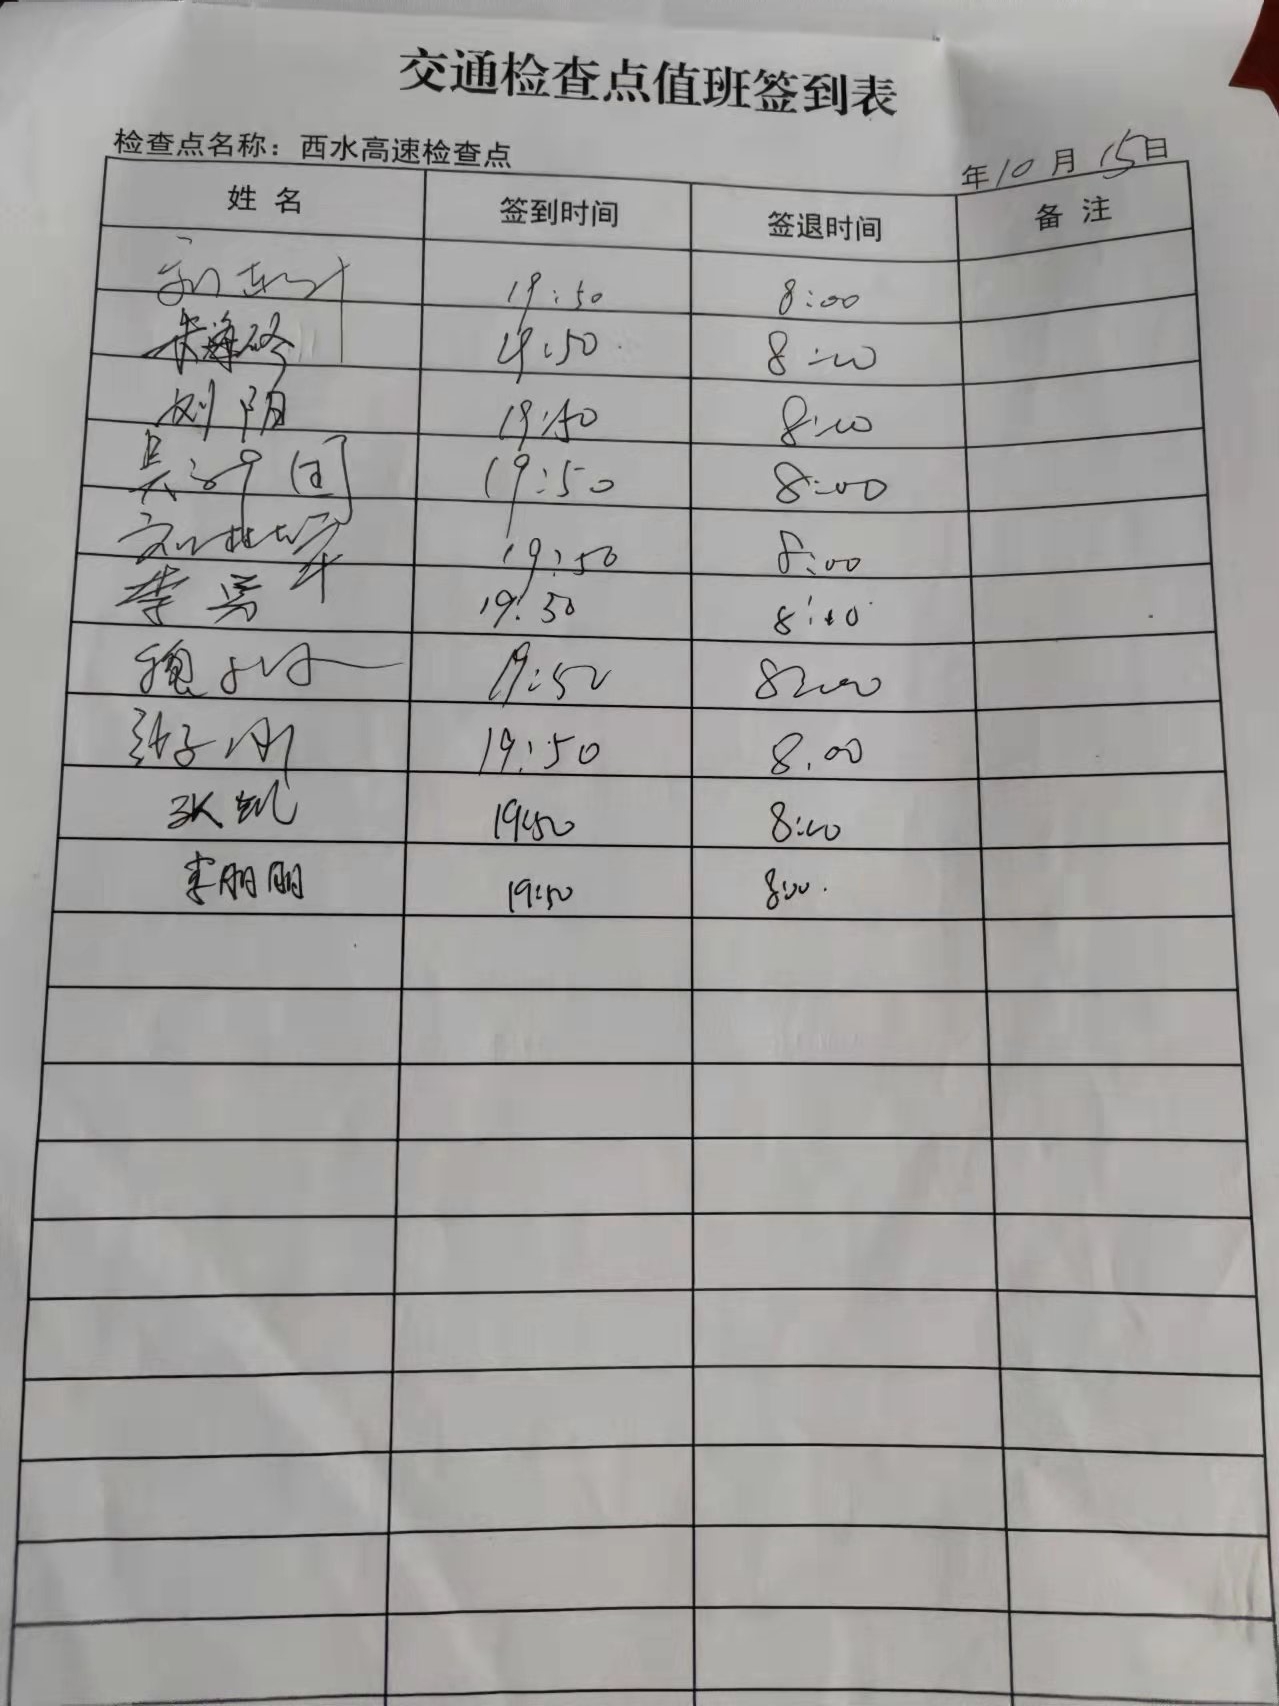 交通检查点值班签到表
检查点名称：西水高速检查点 年10月15日
姓名 签到时间 签退时间 备注
19:50 8:00
19:50 8:00
刘阳 19:50 8:00
19:50 8:00
19:50 8:00
李勇 19:50 8:00
19:50 8:00
19:50 8.00
张凯 19:50 8:00
李朋朋 19:50 8:00.